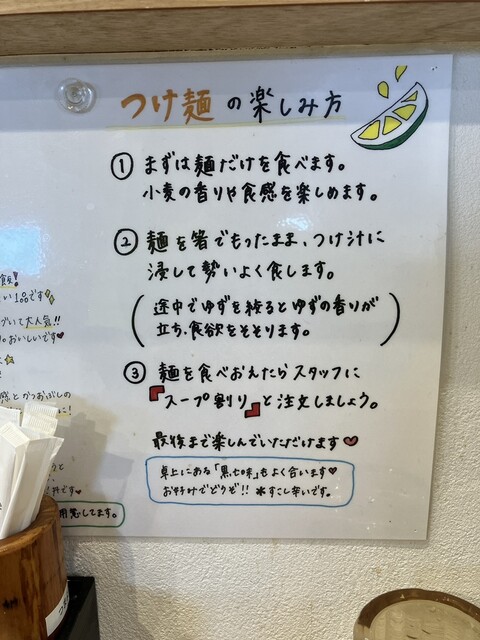 つけ麺の楽しみ方
① まずは麺だけを食べます。
小麦の香りや食感を楽しめます。
② 麺を箸でもったまま、つけ汁に
浸して勢いよく食します。
(途中でゆずを絞るとゆずの香りが
立ち、食欲をそそります。)
③ 麺を食べおえたらスタッフに
『スープ割り』と注文しましょう。
最後まで楽しんでいただけます♥
卓上にある「黒七味」もよく合います♥
お好みでどうぞ!! ※すこし辛いです。
い1品です
づいて大人気!!
おいしいです♥
感とかつおぶしの
に!
と
です♥
用意してます。